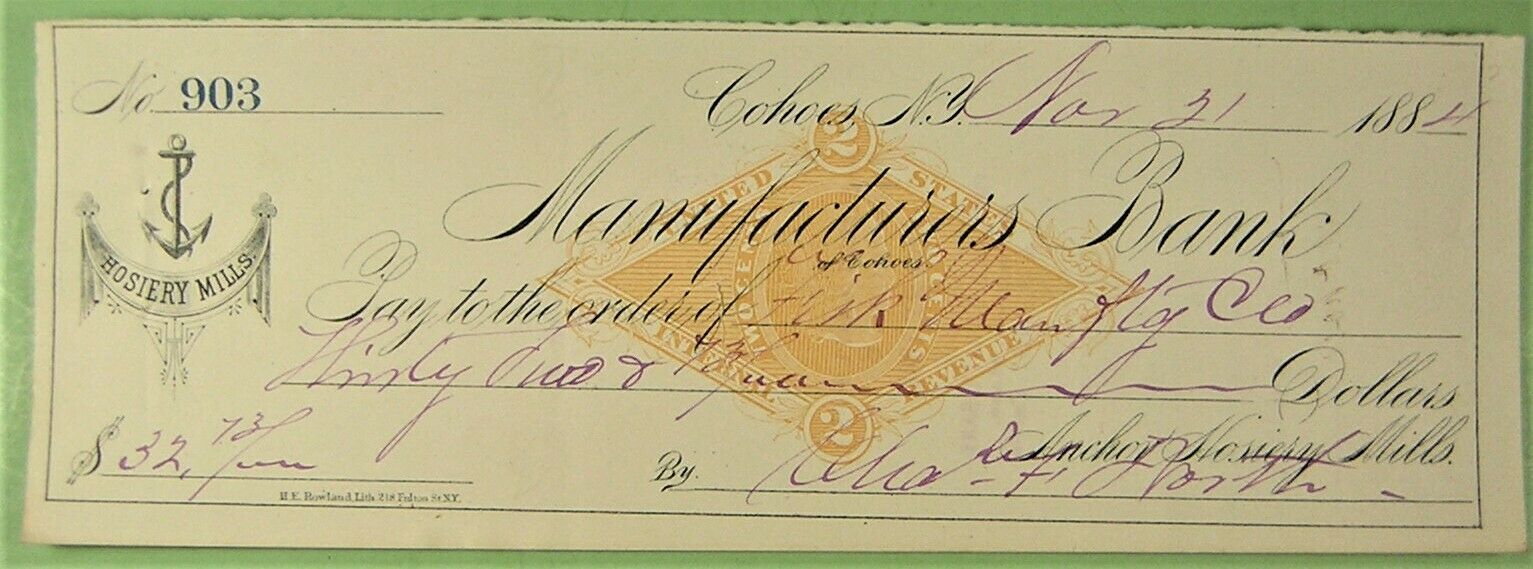 No. 903
Cohoes, N.Y. Nov 21 1884
HOSIERY MILLS.
Manufacturers Bank
of Cohoes.
Pay to the order of Fisk Manfg Co
Thirty Two & 73/100 Dollars
$ 32, 73/100
Anchor Hosiery Mills.
By Chas F North
H.E. Rowland, Lith. 218 Fulton St. N.Y.
2
UNITED STATES
INTERNAL REVENUE
2